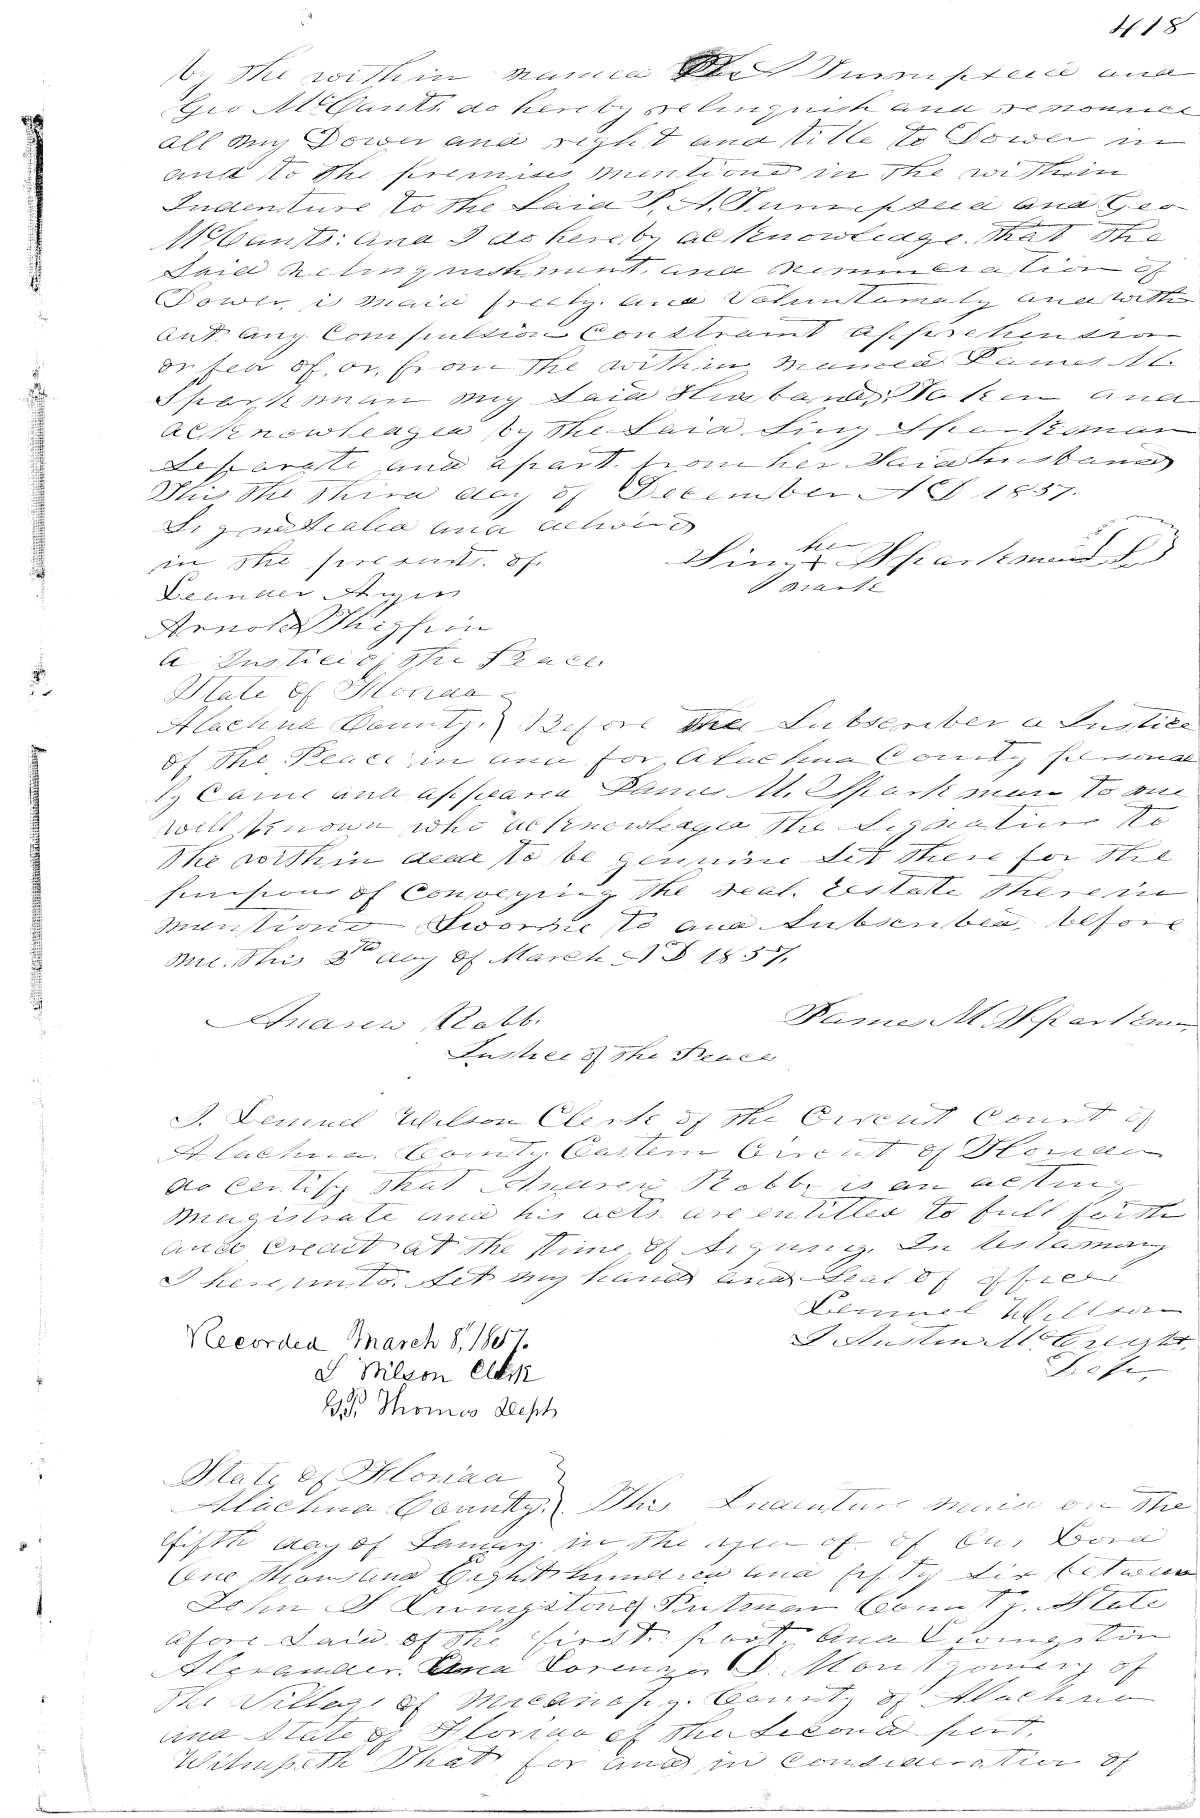 418
by the within named The Turnipseed and
Geo McCants. do hereby relinquish and renounce
all my Dower and right and title to Dower in
and to the premises mentiond in the within
Indenture to the Said T. A. Turnipseed and Geo
McCants: and I do hereby acknowledge. that the
Said relinquishment. and renunciation of
Dower, is maid freely. and Voluntarialy and with
out any Compulsion Constraint apprehension
or fear of, or, from the within named James M.
Sparkman my Said Husband, Taken and
acknowledged by the Said Sing Sparkman
Separate and apart. from her Said husband
This the third day of December AD 1857.
Signed Sealed and deliverd
in the presents. of.
Sing her mark Sparkman
Leander
Arnold Thigpin
A Justice of the Peace.
State of Florida
Alachua County. } Before the Subscriber a Justice
of the Peace in and for Alachua County personal
ly Came and appeared James M. Sparkman to me
well known who acknowledged the Signature to
the within deed to be genuine Set there for the
purpose of Conveying the real. Estate therein
mentiond Sworne to and Subscribed, before
me. this 3rd day of March AD 1857.
Andrew Robb. James M Sparkman
Justice of the Peace
I. Lemuel Wilson Clerk of the Circut Court of
Alachua. County. Eastern Circut of Florida
do certify that Andrew Robb. is an acting
magistrate and his acts. are entitled to full faith
and credit at the time of signing. In testamony
I here,unto. Set my hand and Seal of office
Lemuel Willson
J Austin McCreight.
Dep,
Recorded March 8, 1857.
L Wilson Clerk
G.P. Thomas Depty
State of Florida
Alachua County. } This Indenture maid on the
fifth day of January in the year of of Our Lord
One thousand Eight hundred and fifty six between
John S Livingstone Putman County. State
afore Said. of the first. part. And Livingston
Alexander. And Lorenzo D. Montgomery of
the Village of Micanopy. County of Alachua
and State of Florida of the Second part.
Witnesseth That for and in consideration of